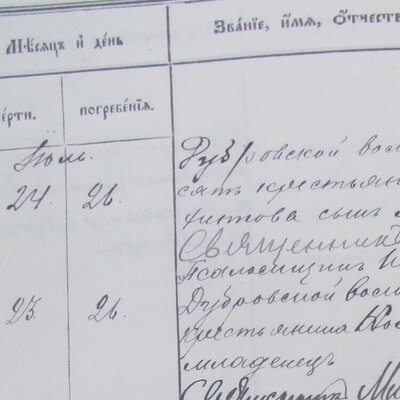 Мѣсяцъ и день
Званіе, имя, отчеств
ерти.
погребенія.
Іюль.
24. 26.
Дубровской вол
сят крестьян
титова сын
Священник
Псаломщик
23. 26.
Дубровской воло
крестьянина Ко
младенец
Священник Ми